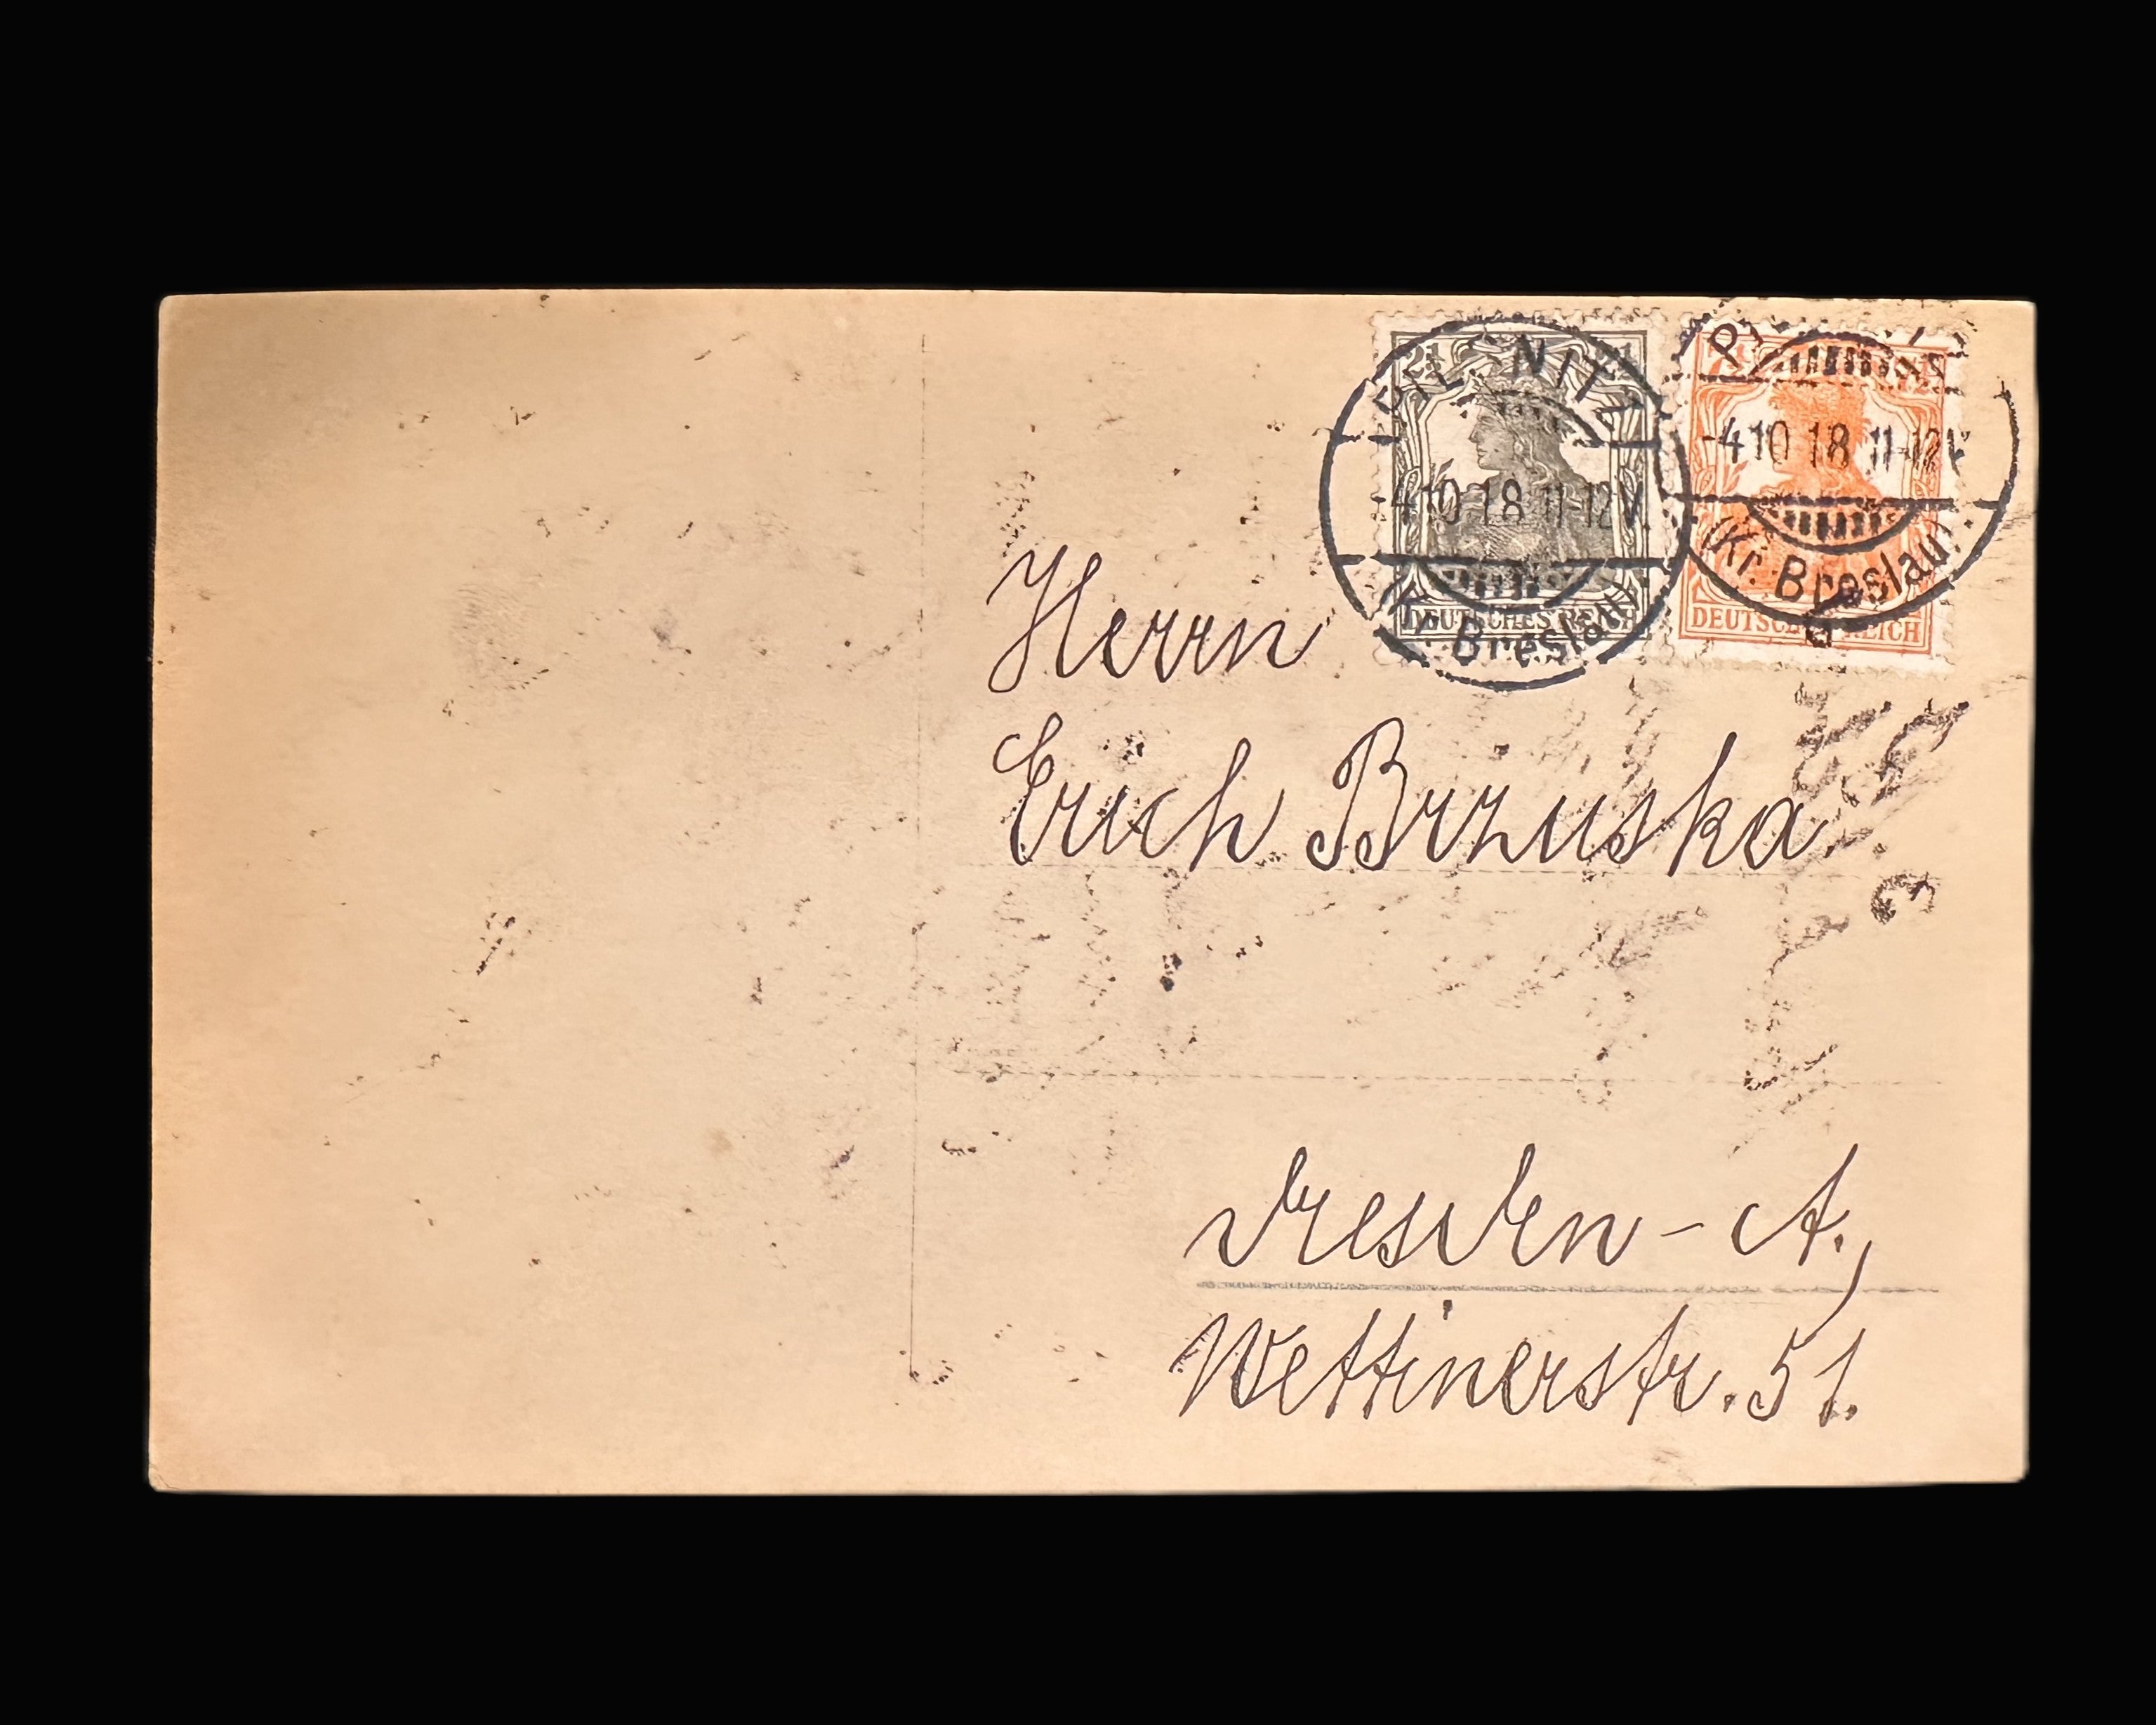 -4.10.18.11-12V.
(Kr. Breslau)
DEUTSCHES REICH
-4.10.18.11-12V.
(Kr. Breslau)
DEUTSCHES REICH
Herrn
Erich Brzuska
Dresden - A.,
Wettinerstr. 51.